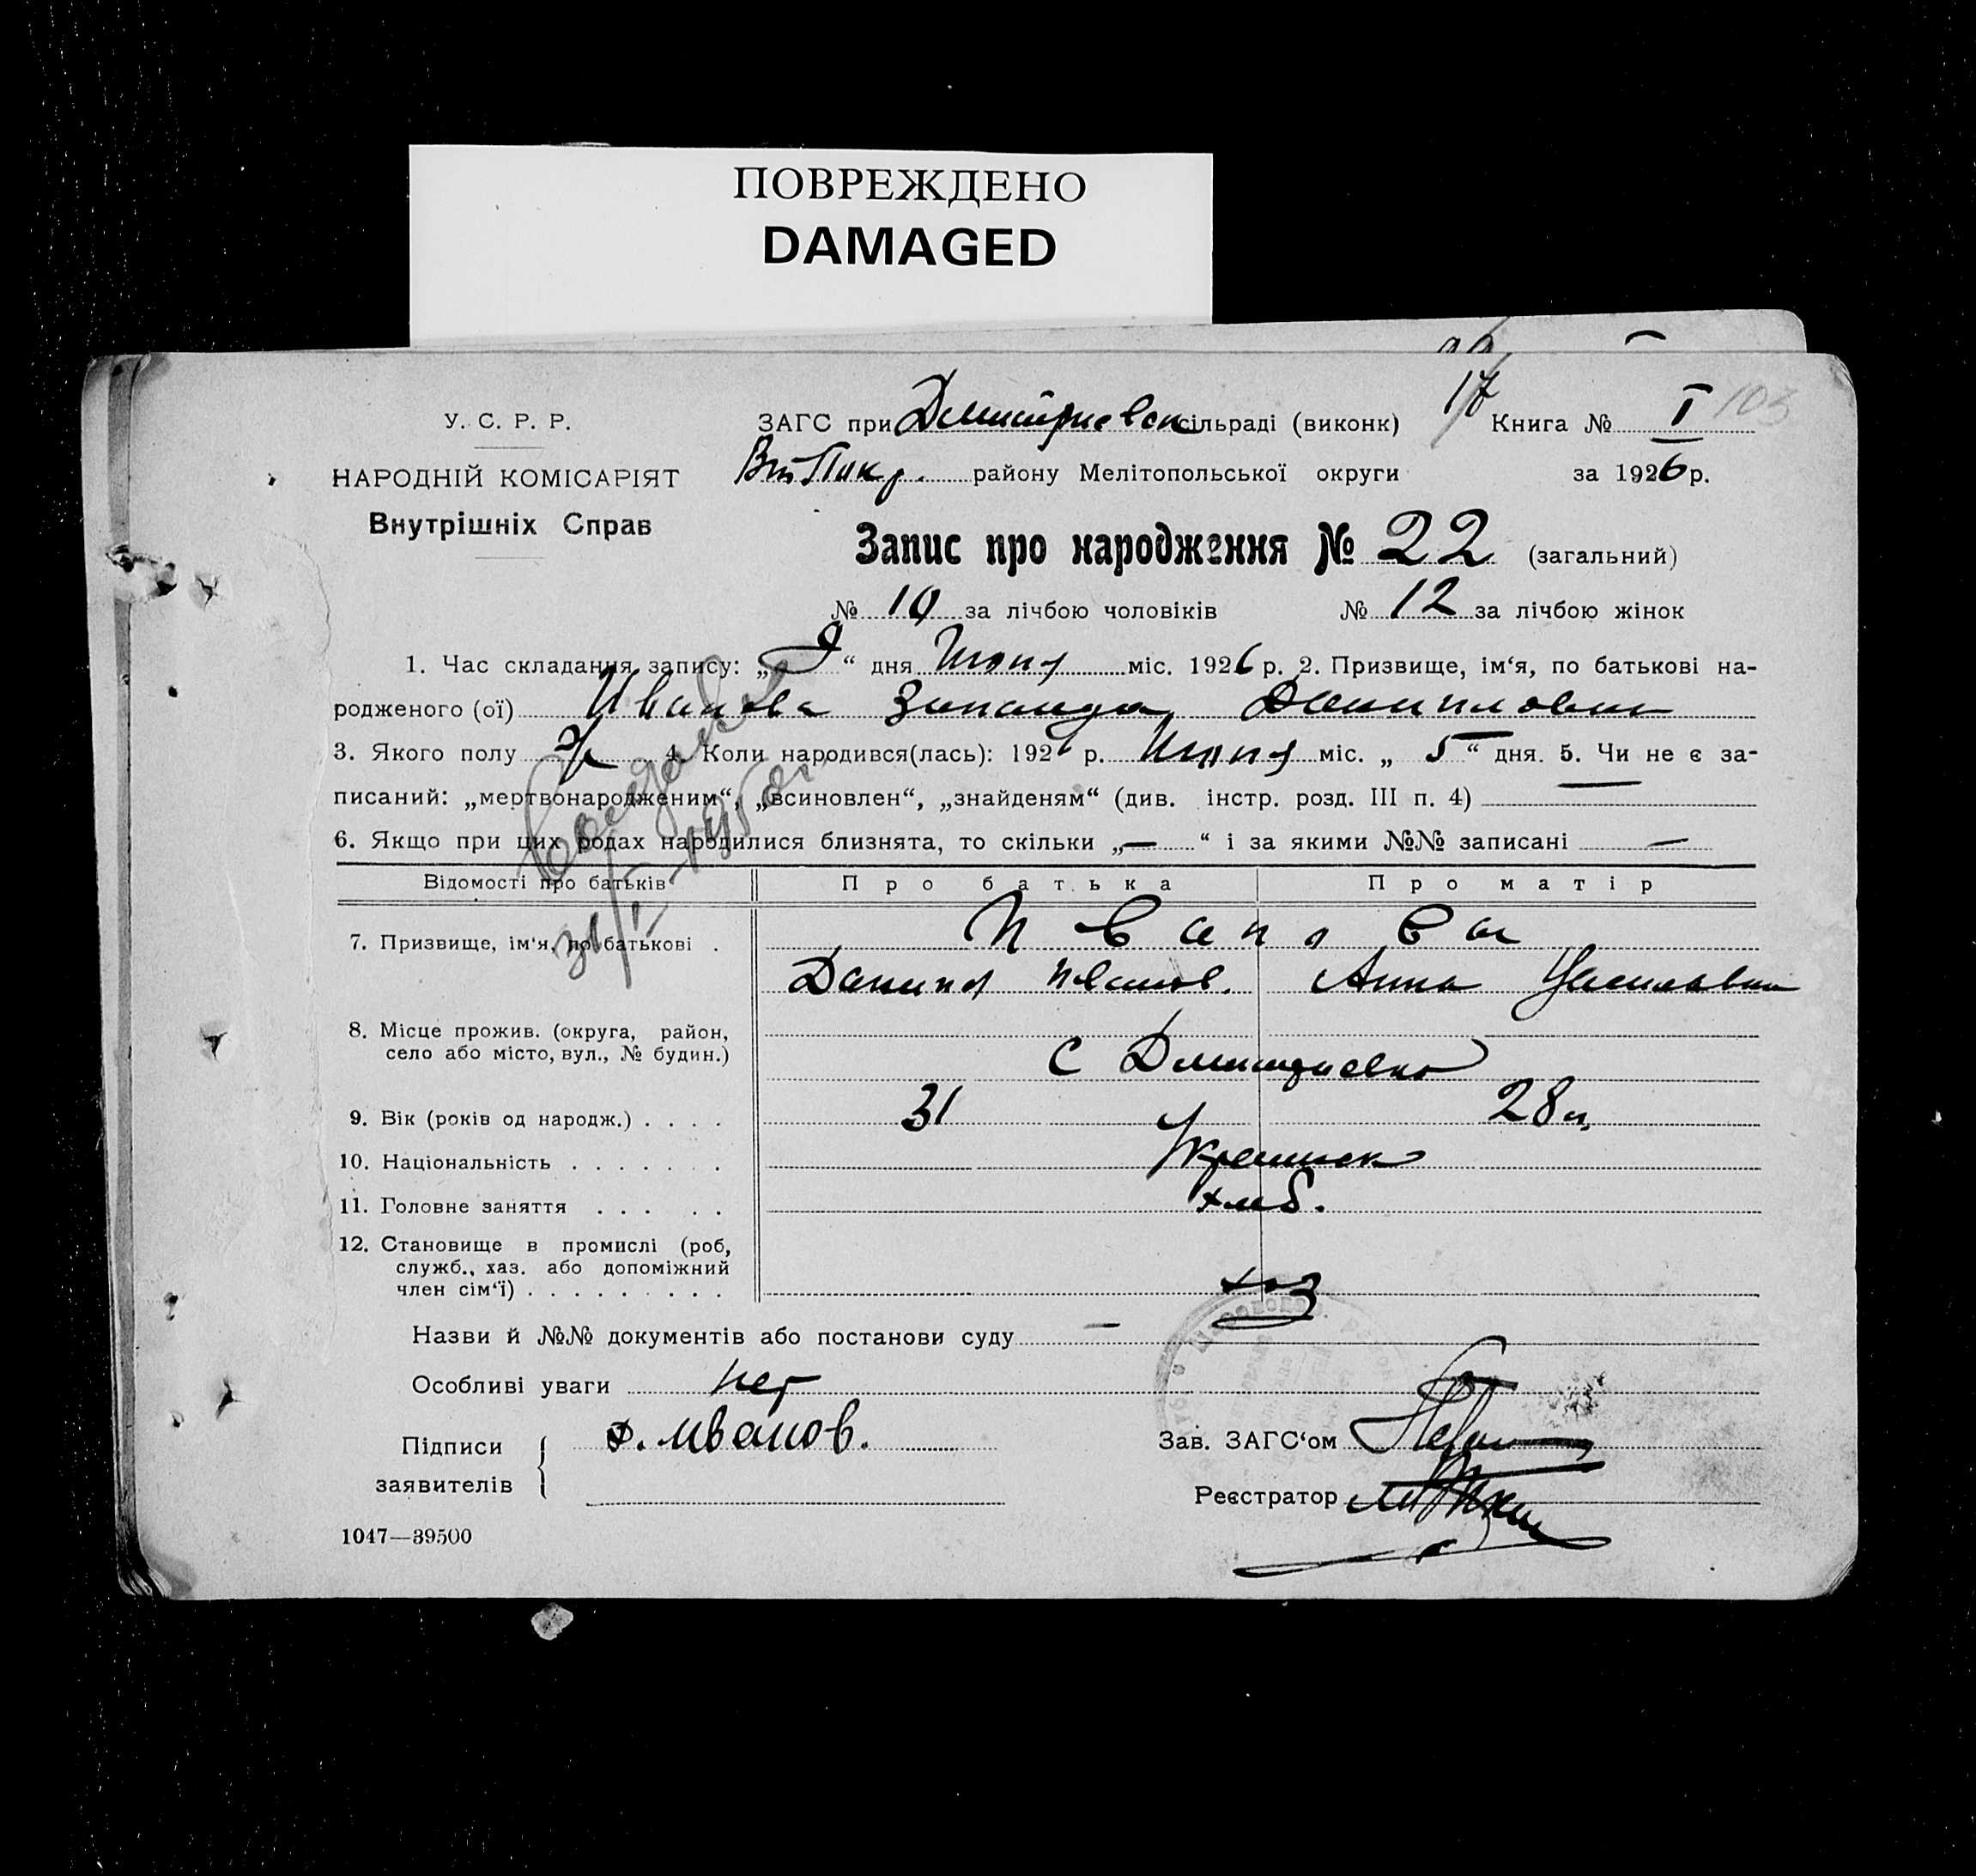 ПОВРЕЖДЕНО
DAMAGED
У. С. Р. Р.
НАРОДНІЙ КОМІСАРІЯТ
Внутрішніх Справ
ЗАГС при Дмитриевск сільраді (виконк)
17 Книга № I 103
району Мелітопольської округи за 1926 р.
Запис про народження № 22 (загальний)
№ 10 за лічбою чоловіків № 12 за лічбою жінок
1. Час складання запису: „9“ дня Июня міс. 1926 р. 2. Призвище, ім‘я, по батькові на-
родженого (ої) Иванова Зинаида Данииловна
3. Якого полу ж 4. Коли народився(лась): 1926 р. Июня міс. „5“ дня. 5. Чи не є за-
писаний: „мертвонародженим“, „всиновлен“, „знайденям“ (див. інстр. розд. III п. 4) —
6. Якщо при цих родах народилися близнята, то скільки „—“ і за якими №№ записані —
Відомості про батьків Про батька Про матір
7. Призвище, ім‘я, по батькові . Иванова
Даниил Иванов. Анна
8. Місце прожив. (округа, район,
село або місто, вул., № будин.)
с Дмитриевка
9. Вік (років од народж.) . . . . 31 28
10. Національність . . . . . . . Украинск
11. Головне заняття . . . . . хлеб.
12. Становище в промислі (роб,
служб., хаз. або допоміжний
член сім‘ї) . . . . . . . . . хоз
Назви й №№ документів або постанови суду —
Особливі уваги нет
Підписи
заявителів
Д. Иванов.
Зав. ЗАГС‘ом
Реєстратор
1047—39500